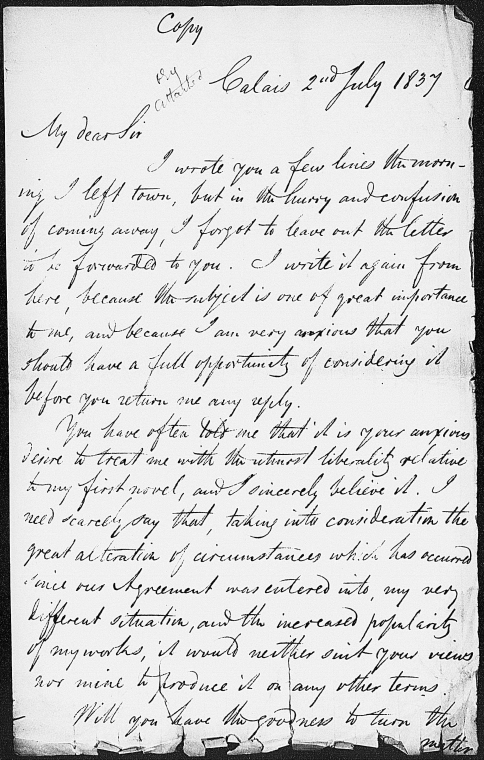 Copy
Calais 2nd July 1837
My dear Sir
I wrote you a few lines the morn-
ing I left town, but in the hurry and confusion
of coming away, I forgot to leave out the letter
to be forwarded to you. I write it again from
here, because the subject is one of great importance
to me, and because I am very anxious that you
should have a full opportunity of considering it
before you return me any reply.
You have often told me that it is your anxious
desire to treat me with the utmost liberality relative
to my first novel, and I sincerely believe it. I
need scarcely say that, taking into consideration the
great alteration of circumstances which has occurred
since our Agreement was entered into, my very
different situation, and the increased popularity
of my works, it would neither suit your views
nor mine to produce it on any other terms.
Will you have the goodness to turn the
matter